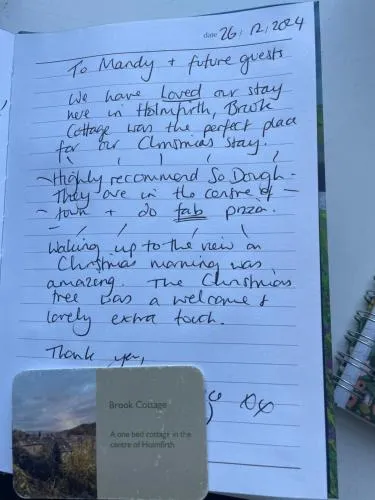 date 26/12/2024
To Mandy + future guests
We have Loved our stay
here in Holmfirth, Brook
Cottage was the perfect place
for our Christmas stay.
- Highly recommend So Dough -
They are in the centre of -
- town + do fab pizza.
Waking up to the view on
Christmas morning was
amazing. The Christmas
tree was a welcome &
lovely extra touch.
Thank you,
Brook Cottage
A one bed cottage in the
centre of Holmfirth